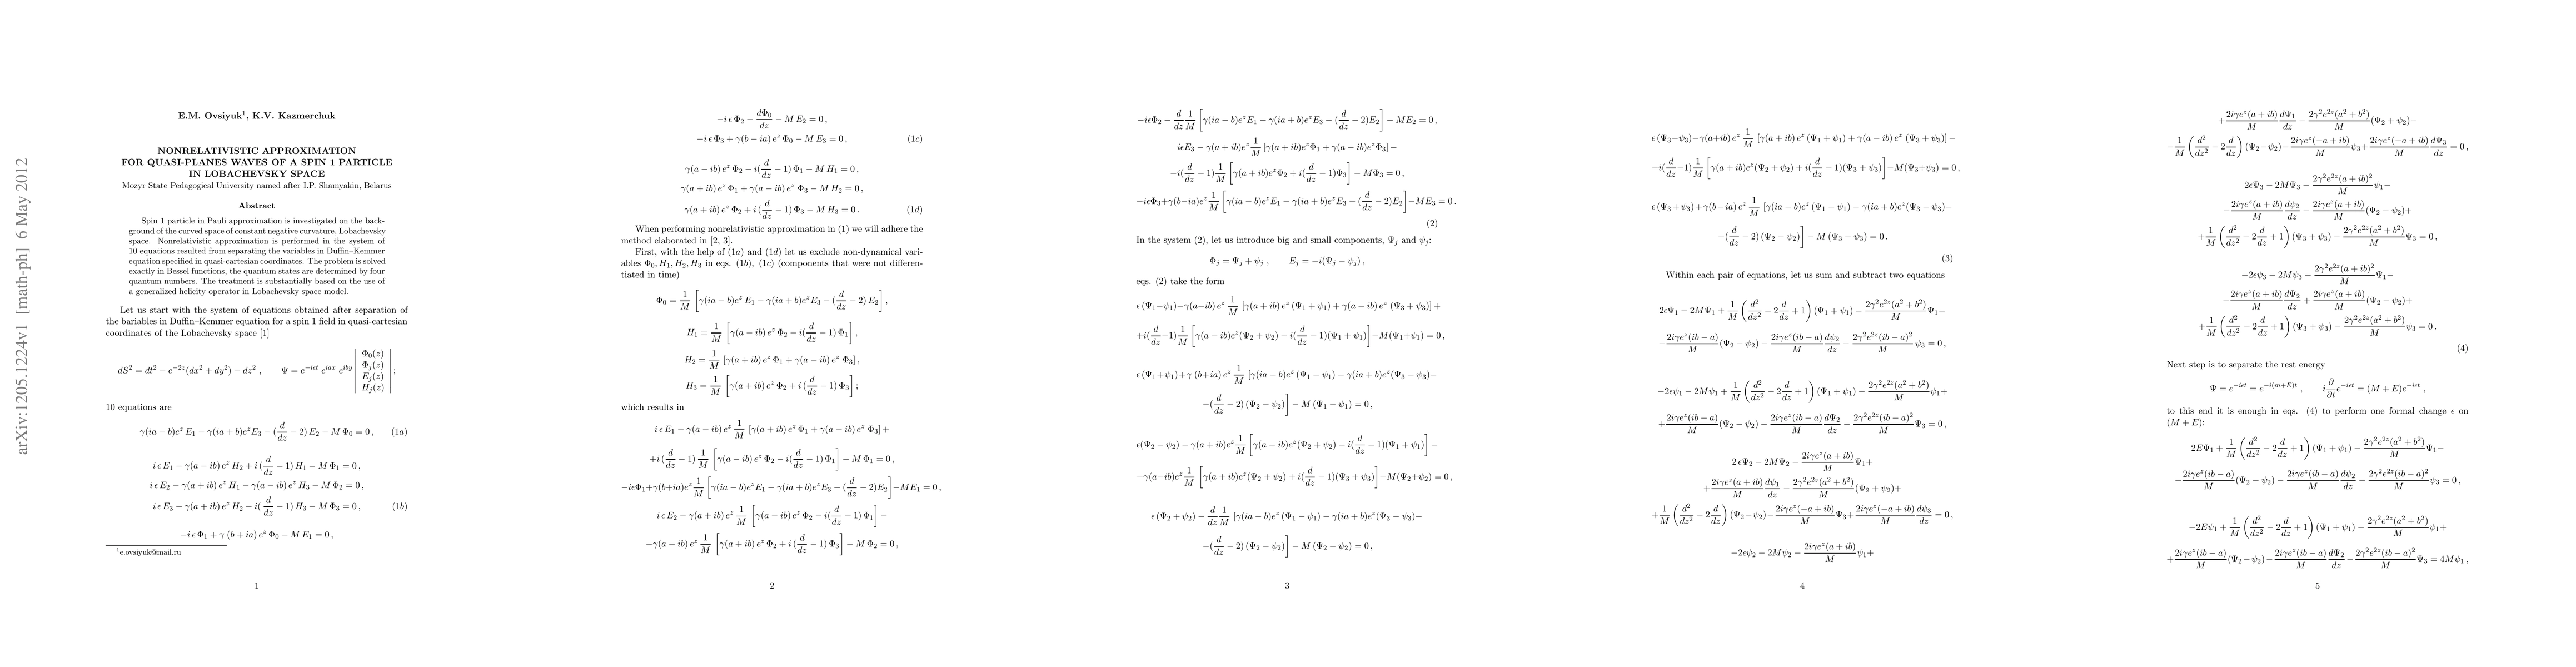 arXiv:1205.1224v1 [math-ph] 6 May 2012
E.M. Ovsiyuk¹, K.V. Kazmerchuk
NONRELATIVISTIC APPROXIMATION
FOR QUASI-PLANES WAVES OF A SPIN 1 PARTICLE
IN LOBACHEVSKY SPACE
Mozyr State Pedagogical University named after I.P. Shamyakin, Belarus
Abstract
Spin 1 particle in Pauli approximation is investigated on the back-
ground of the curved space of constant negative curvature, Lobachevsky
space. Nonrelativistic approximation is performed in the system of
10 equations resulted from separating the variables in Duffin–Kemmer
equation specified in quasi-cartesian coordinates. The problem is solved
exactly in Bessel functions, the quantum states are determined by four
quantum numbers. The treatment is substantially based on the use of
a generalized helicity operator in Lobachevsky space model.
Let us start with the system of equations obtained after separation of
the bariables in Duffin–Kemmer equation for a spin 1 field in quasi-cartesian
coordinates of the Lobachevsky space [1]
dS² = dt² − e^{−2z}(dx² + dy²) − dz² ,  Ψ = e^{−iϵt} e^{iax} e^{iby} | Φ₀(z) Φⱼ(z) Eⱼ(z) Hⱼ(z) | ;
10 equations are
γ(ia − b)e^z E₁ − γ(ia + b)e^z E₃ − (d/dz − 2) E₂ − M Φ₀ = 0 , (1a)
i ϵ E₁ − γ(a − ib) e^z H₂ + i (d/dz − 1) H₁ − M Φ₁ = 0 ,
i ϵ E₂ − γ(a + ib) e^z H₁ − γ(a − ib) e^z H₃ − M Φ₂ = 0 ,
i ϵ E₃ − γ(a + ib) e^z H₂ − i( d/dz − 1) H₃ − M Φ₃ = 0 , (1b)
−i ϵ Φ₁ + γ (b + ia) e^z Φ₀ − M E₁ = 0 ,
¹e.ovsiyuk@mail.ru
1
−i ϵ Φ₂ − dΦ₀/dz − M E₂ = 0 ,
−i ϵ Φ₃ + γ(b − ia) e^z Φ₀ − M E₃ = 0 , (1c)
γ(a − ib) e^z Φ₂ − i(d/dz − 1) Φ₁ − M H₁ = 0 ,
γ(a + ib) e^z Φ₁ + γ(a − ib) e^z Φ₃ − M H₂ = 0 ,
γ(a + ib) e^z Φ₂ + i (d/dz − 1) Φ₃ − M H₃ = 0 . (1d)
When performing nonrelativistic approximation in (1) we will adhere the
method elaborated in [2, 3].
First, with the help of (1a) and (1d) let us exclude non-dynamical vari-
ables Φ₀, H₁, H₂, H₃ in eqs. (1b), (1c) (components that were not differen-
tiated in time)
Φ₀ = 1/M [ γ(ia − b)e^z E₁ − γ(ia + b)e^z E₃ − (d/dz − 2) E₂ ] ,
H₁ = 1/M [ γ(a − ib) e^z Φ₂ − i(d/dz − 1) Φ₁ ] ,
H₂ = 1/M [γ(a + ib) e^z Φ₁ + γ(a − ib) e^z Φ₃] ,
H₃ = 1/M [ γ(a + ib) e^z Φ₂ + i (d/dz − 1) Φ₃ ] ;
which results in
i ϵ E₁ − γ(a − ib) e^z 1/M [γ(a + ib) e^z Φ₁ + γ(a − ib) e^z Φ₃] +
+i (d/dz − 1) 1/M [ γ(a − ib) e^z Φ₂ − i(d/dz − 1) Φ₁ ] − M Φ₁ = 0 ,
−iϵΦ₁+γ(b+ia)e^z 1/M [ γ(ia − b)e^z E₁ − γ(ia + b)e^z E₃ − (d/dz − 2)E₂ ] −ME₁ = 0 ,
i ϵ E₂ − γ(a + ib) e^z 1/M [ γ(a − ib) e^z Φ₂ − i(d/dz − 1) Φ₁ ] −
−γ(a − ib) e^z 1/M [ γ(a + ib) e^z Φ₂ + i (d/dz − 1) Φ₃ ] − M Φ₂ = 0 ,
2
−iϵΦ₂ − d/dz 1/M [ γ(ia − b)e^z E₁ − γ(ia + b)e^z E₃ − (d/dz − 2)E₂ ] − ME₂ = 0 ,
iϵE₃ − γ(a + ib)e^z 1/M [γ(a + ib)e^z Φ₁ + γ(a − ib)e^z Φ₃] −
−i(d/dz − 1) 1/M [ γ(a + ib)e^z Φ₂ + i(d/dz − 1)Φ₃ ] − MΦ₃ = 0 ,
−iϵΦ₃+γ(b−ia)e^z 1/M [ γ(ia − b)e^z E₁ − γ(ia + b)e^z E₃ − (d/dz − 2)E₂ ] −ME₃ = 0 .
(2)
In the system (2), let us introduce big and small components, Ψⱼ and ψⱼ:
Φⱼ = Ψⱼ + ψⱼ ,  Eⱼ = −i(Ψⱼ − ψⱼ) ,
eqs. (2) take the form
ϵ (Ψ₁−ψ₁)−γ(a−ib) e^z 1/M [γ(a + ib) e^z (Ψ₁ + ψ₁) + γ(a − ib) e^z (Ψ₃ + ψ₃)] +
+i(d/dz −1) 1/M [ γ(a − ib) e^z(Ψ₂ + ψ₂) − i(d/dz − 1)(Ψ₁ + ψ₁) ] −M(Ψ₁+ψ₁) = 0 ,
ϵ (Ψ₁+ψ₁)+γ (b+ia) e^z 1/M [γ(ia − b)e^z (Ψ₁ − ψ₁) − γ(ia + b)e^z(Ψ₃ − ψ₃)−
−(d/dz − 2) (Ψ₂ − ψ₂) ] − M (Ψ₁ − ψ₁) = 0 ,
ϵ(Ψ₂ − ψ₂) − γ(a + ib)e^z 1/M [ γ(a − ib)e^z(Ψ₂ + ψ₂) − i(d/dz − 1)(Ψ₁ + ψ₁) ] −
−γ(a−ib)e^z 1/M [ γ(a + ib)e^z(Ψ₂ + ψ₂) + i(d/dz − 1)(Ψ₃ + ψ₃) ] −M(Ψ₂+ψ₂) = 0 ,
ϵ (Ψ₂ + ψ₂) − d/dz 1/M [γ(ia − b)e^z (Ψ₁ − ψ₁) − γ(ia + b)e^z(Ψ₃ − ψ₃)−
−(d/dz − 2) (Ψ₂ − ψ₂) ] − M (Ψ₂ − ψ₂) = 0 ,
3
ϵ (Ψ₃−ψ₃)−γ(a+ib) e^z 1/M [γ(a + ib) e^z (Ψ₁ + ψ₁) + γ(a − ib) e^z (Ψ₃ + ψ₃)] −
−i(d/dz −1) 1/M [ γ(a + ib)e^z(Ψ₂ + ψ₂) + i(d/dz − 1)(Ψ₃ + ψ₃) ] −M(Ψ₃+ψ₃) = 0 ,
ϵ (Ψ₃+ψ₃)+γ(b−ia) e^z 1/M [γ(ia − b)e^z (Ψ₁ − ψ₁) − γ(ia + b)e^z(Ψ₃ − ψ₃)−
−(d/dz − 2) (Ψ₂ − ψ₂) ] − M (Ψ₃ − ψ₃) = 0 .
(3)
Within each pair of equations, let us sum and subtract two equations
2ϵΨ₁ − 2MΨ₁ + 1/M ( d²/dz² − 2 d/dz + 1 ) (Ψ₁ + ψ₁) − 2γ²e^{2z}(a² + b²)/M Ψ₁−
− 2iγe^z(ib − a)/M (Ψ₂ − ψ₂) − 2iγe^z(ib − a)/M dψ₂/dz − 2γ²e^{2z}(ib − a)²/M ψ₃ = 0 ,
−2ϵψ₁ − 2Mψ₁ + 1/M ( d²/dz² − 2 d/dz + 1 ) (Ψ₁ + ψ₁) − 2γ²e^{2z}(a² + b²)/M ψ₁+
+ 2iγe^z(ib − a)/M (Ψ₂ − ψ₂) − 2iγe^z(ib − a)/M dΨ₂/dz − 2γ²e^{2z}(ib − a)²/M Ψ₃ = 0 ,
2 ϵΨ₂ − 2MΨ₂ − 2iγe^z(a + ib)/M Ψ₁+
+ 2iγe^z(a + ib)/M dψ₁/dz − 2γ²e^{2z}(a² + b²)/M (Ψ₂ + ψ₂)+
+ 1/M ( d²/dz² − 2 d/dz ) (Ψ₂−ψ₂)− 2iγe^z(−a + ib)/M Ψ₃+ 2iγe^z(−a + ib)/M dψ₃/dz = 0 ,
−2ϵψ₂ − 2Mψ₂ − 2iγe^z(a + ib)/M ψ₁+
4
+ 2iγe^z(a + ib)/M dΨ₁/dz − 2γ²e^{2z}(a² + b²)/M (Ψ₂ + ψ₂)−
− 1/M ( d²/dz² − 2 d/dz ) (Ψ₂−ψ₂)− 2iγe^z(−a + ib)/M ψ₃+ 2iγe^z(−a + ib)/M dΨ₃/dz = 0 ,
2ϵΨ₃ − 2MΨ₃ − 2γ²e^{2z}(a + ib)²/M ψ₁−
− 2iγe^z(a + ib)/M dψ₂/dz − 2iγe^z(a + ib)/M (Ψ₂ − ψ₂)+
+ 1/M ( d²/dz² − 2 d/dz + 1 ) (Ψ₃ + ψ₃) − 2γ²e^{2z}(a² + b²)/M Ψ₃ = 0 ,
−2ϵψ₃ − 2Mψ₃ − 2γ²e^{2z}(a + ib)²/M Ψ₁−
− 2iγe^z(a + ib)/M dΨ₂/dz + 2iγe^z(a + ib)/M (Ψ₂ − ψ₂)+
+ 1/M ( d²/dz² − 2 d/dz + 1 ) (Ψ₃ + ψ₃) − 2γ²e^{2z}(a² + b²)/M ψ₃ = 0 .
(4)
Next step is to separate the rest energy
Ψ = e^{−iϵt} = e^{−i(m+E)t} ,  i ∂/∂t e^{−iϵt} = (M + E)e^{−iϵt} ,
to this end it is enough in eqs. (4) to perform one formal change ϵ on
(M + E):
2EΨ₁ + 1/M ( d²/dz² − 2 d/dz + 1 ) (Ψ₁ + ψ₁) − 2γ²e^{2z}(a² + b²)/M Ψ₁−
− 2iγe^z(ib − a)/M (Ψ₂ − ψ₂) − 2iγe^z(ib − a)/M dψ₂/dz − 2γ²e^{2z}(ib − a)²/M ψ₃ = 0 ,
−2Eψ₁ + 1/M ( d²/dz² − 2 d/dz + 1 ) (Ψ₁ + ψ₁) − 2γ²e^{2z}(a² + b²)/M ψ₁+
+ 2iγe^z(ib − a)/M (Ψ₂−ψ₂)− 2iγe^z(ib − a)/M dΨ₂/dz − 2γ²e^{2z}(ib − a)²/M Ψ₃ = 4Mψ₁ ,
5